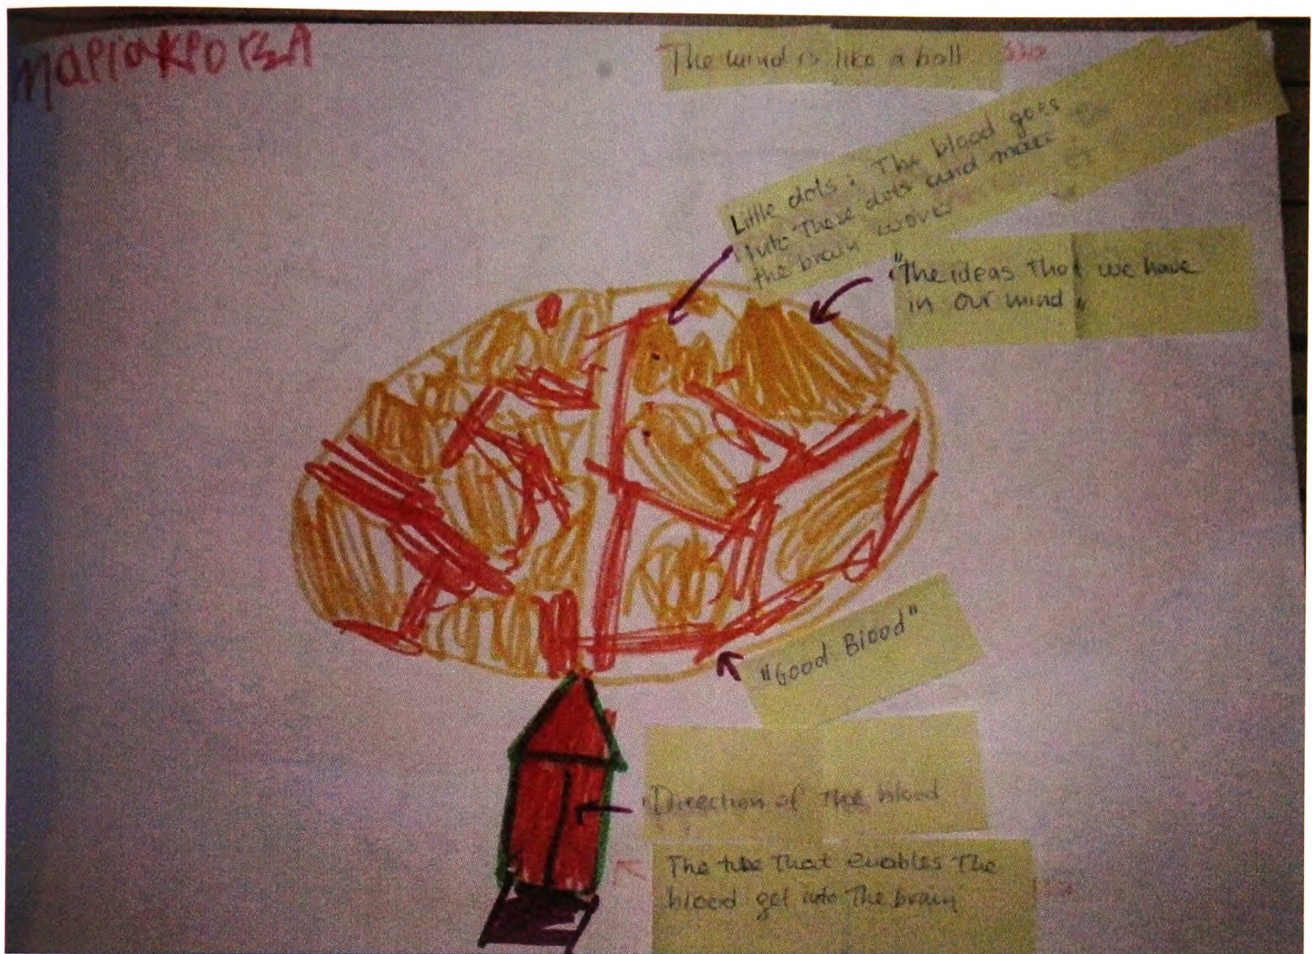 The mind is like a ball
Little dots: The blood goes
into these dots and make
the brain
"The ideas that we have
in our mind"
"Good Blood"
Direction of the blood
The tube that enables the
blood get into the brain